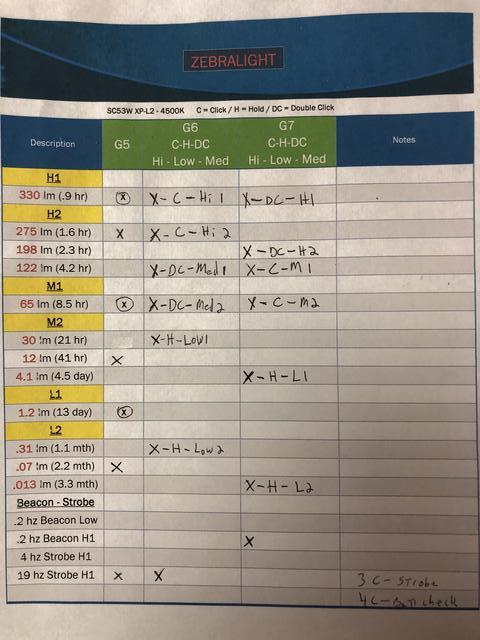 ZEBRALIGHT
SC53W XP-L2 - 4500K C = Click / H = Hold / DC = Double Click
Description G5 G6 C-H-DC Hi - Low - Med G7 C-H-DC Hi - Low - Med Notes
H1
330 lm (.9 hr) X X - C - Hi 1 X - DC - H1
H2
275 lm (1.6 hr) X X - C - Hi 2
198 lm (2.3 hr) X - DC - H2
122 lm (4.2 hr) X-DC-Med 1 X - C - M 1
M1
65 lm (8.5 hr) X X-DC-Med 2 X - C - M2
M2
30 lm (21 hr) X-H-Low 1
12 lm (41 hr) X
4.1 lm (4.5 day) X-H-L1
L1
1.2 lm (13 day) X
L2
.31 lm (1.1 mth) X-H-Low 2
.07 lm (2.2 mth) X
.013 lm (3.3 mth) X-H-L2
Beacon - Strobe
.2 hz Beacon Low
.2 hz Beacon H1 X
4 hz Strobe H1
19 hz Strobe H1 X X 3 C - Strobe
4C - Batt check